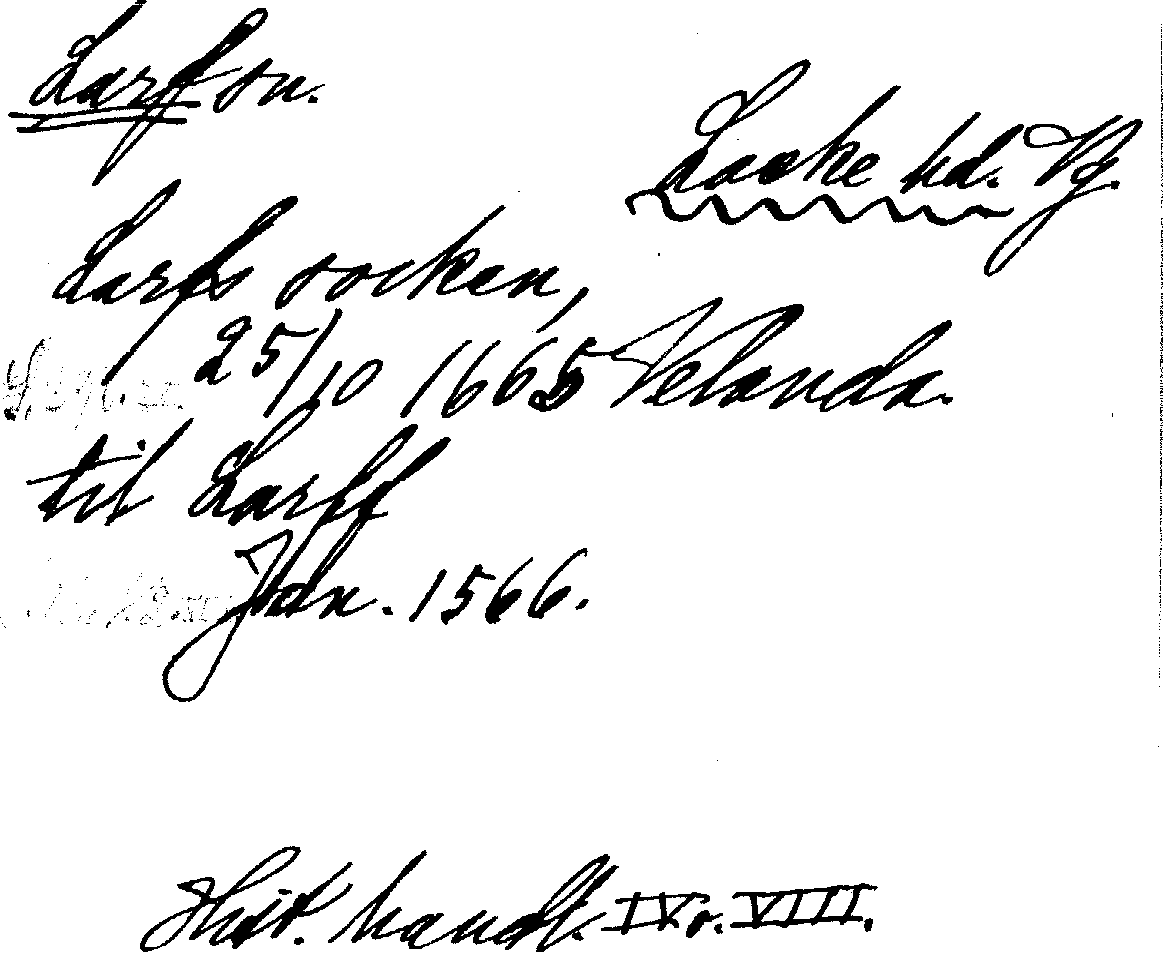 Larf sn.
Laske hd. Vg.
Larfs socken,
25/10 1665 Velanda.
til Larff
Jan. 1566.
Hist. handl. IV o. VIII.